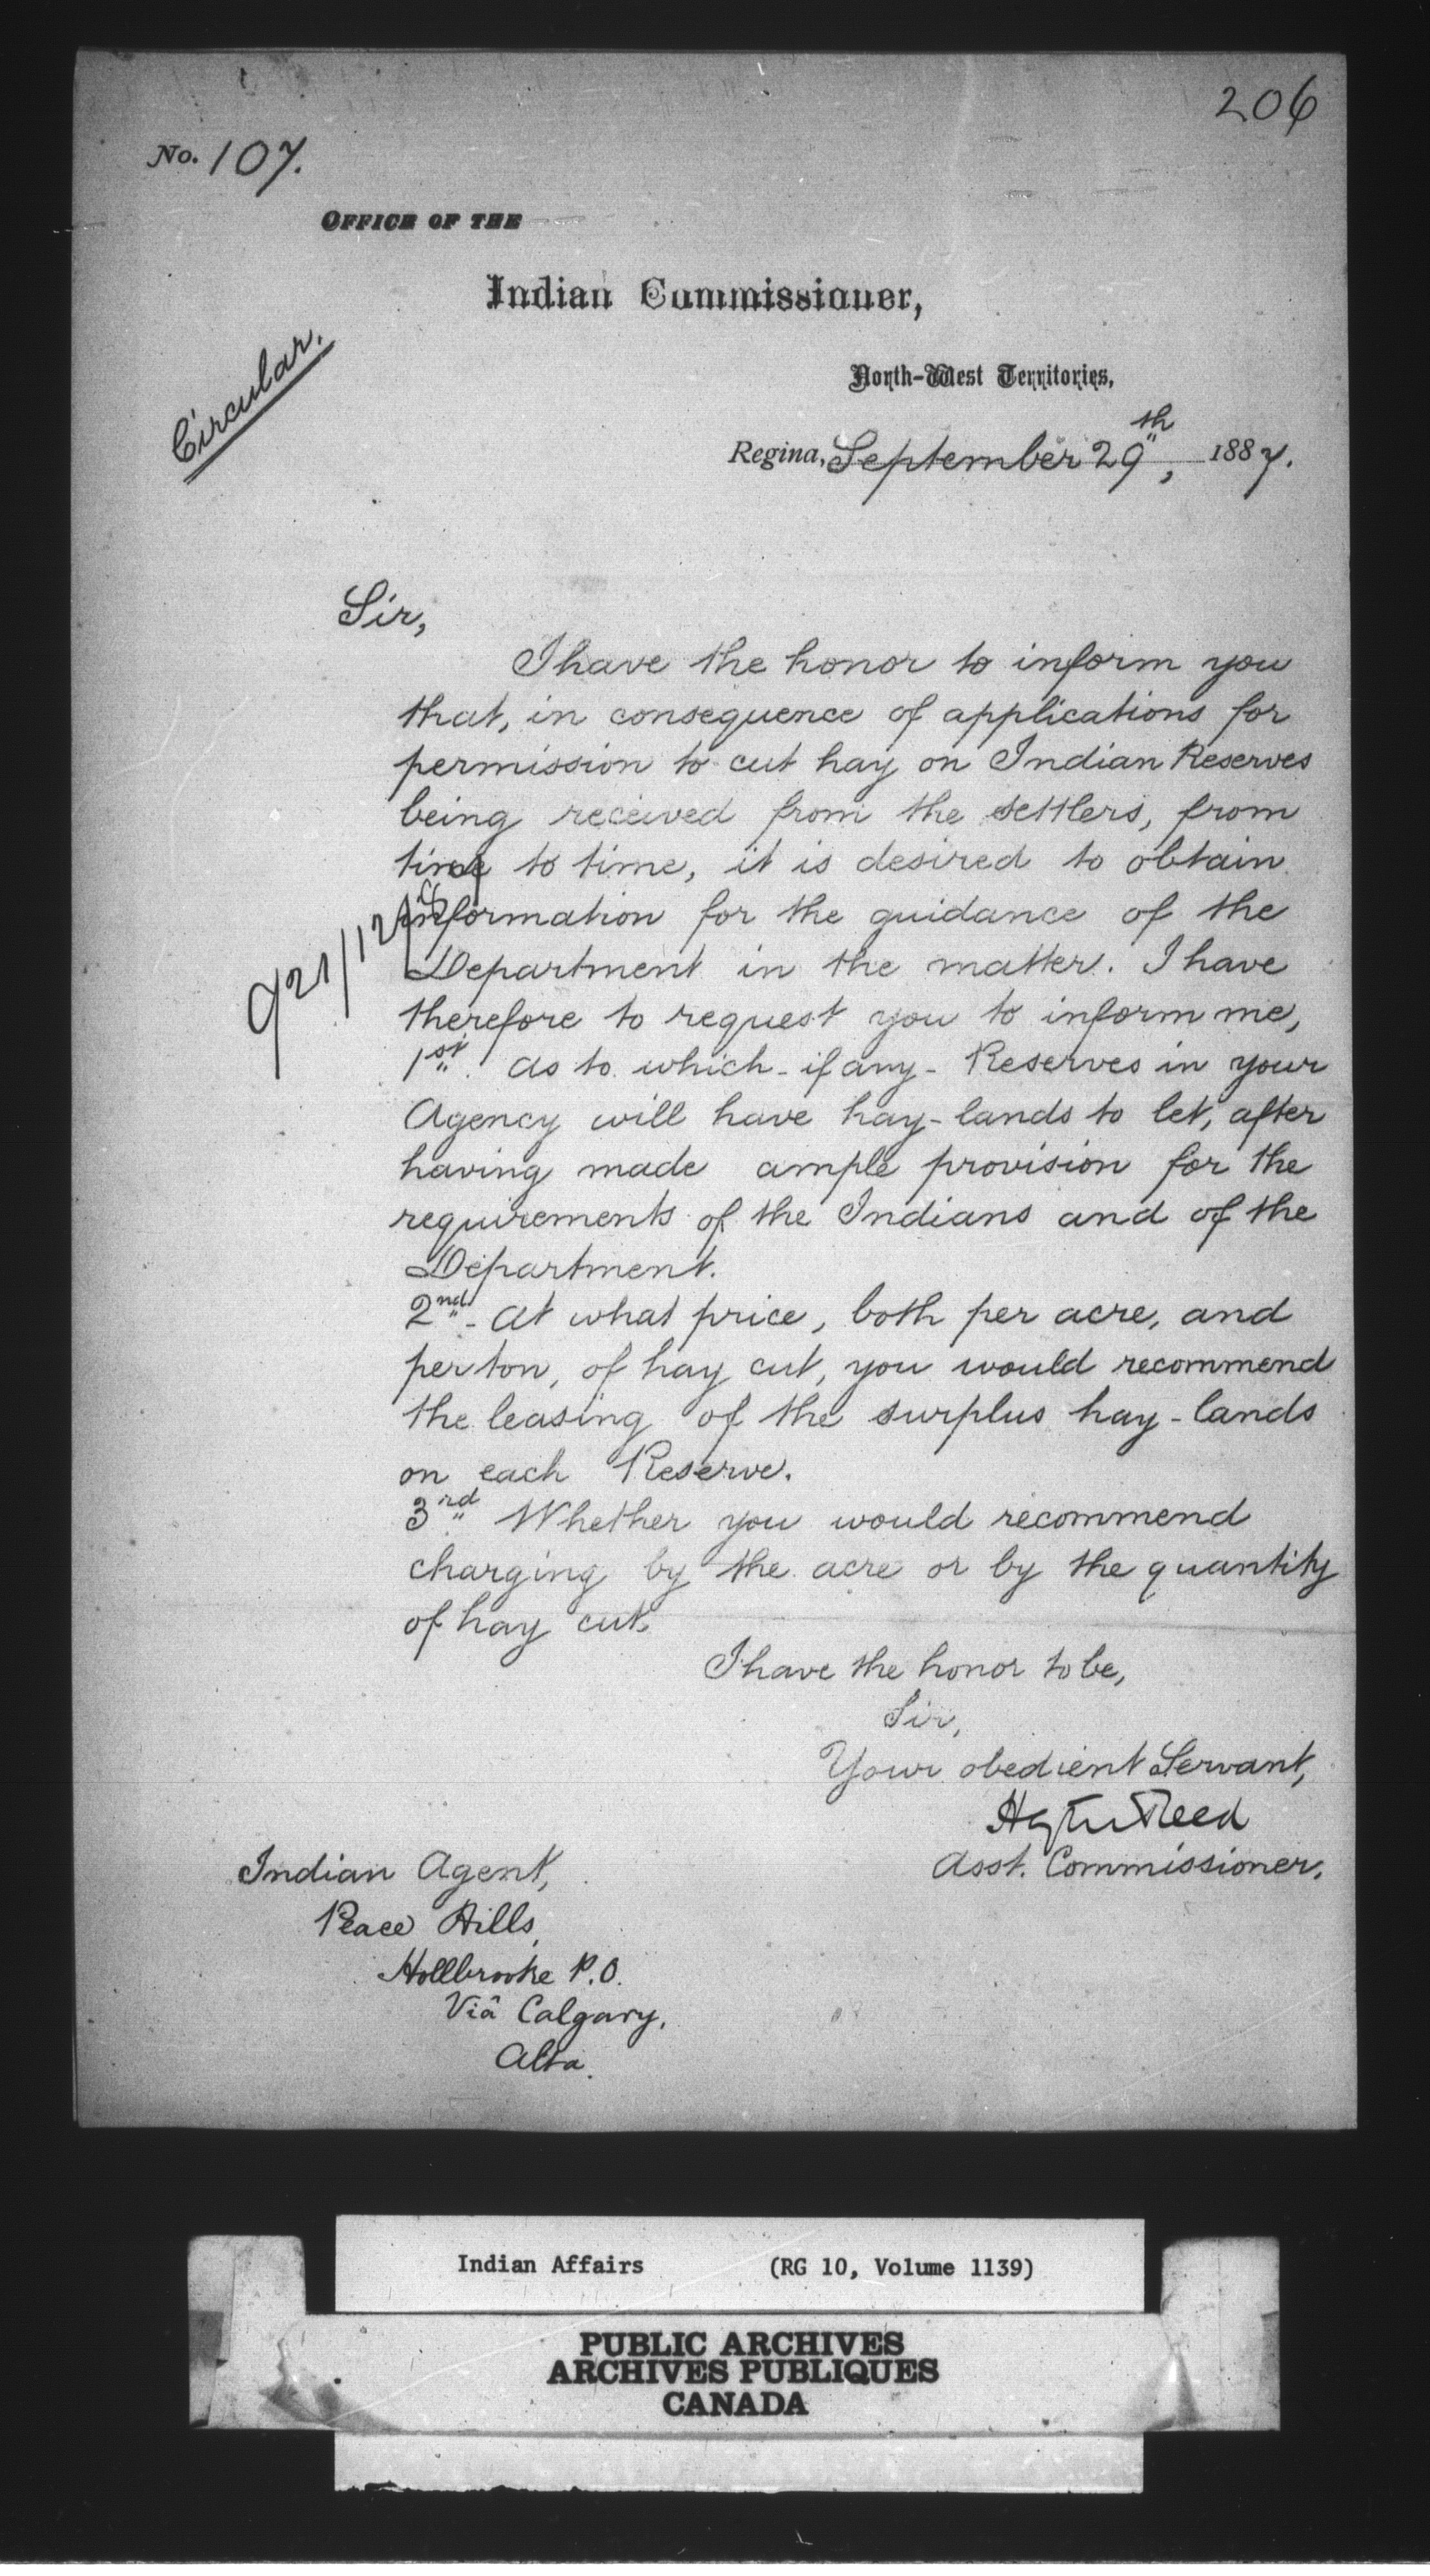 206
No. 107.
OFFICE OF THE
Indian Commissioner,
Circular.
North-West Territories,
Regina, September 29th, 1887.
Sir,
I have the honor to inform you
that, in consequence of applications for
permission to cut hay on Indian Reserves
being received from the settlers, from
time to time, it is desired to obtain
information for the guidance of the
Department in the matter. I have
therefore to request you to inform me,
1st. as to which - if any - Reserves in your
Agency will have hay-lands to let, after
having made ample provision for the
requirements of the Indians and of the
Department.
2nd - at what price, both per acre, and
per ton, of hay cut, you would recommend
the leasing of the surplus hay-lands
on each Reserve.
3rd Whether you would recommend
charging by the acre or by the quantity
of hay cut.
I have the honor to be,
Sir,
Your obedient Servant,
Hayter Reed
Asst. Commissioner.
Indian Agent,
Peace Hills,
Hollbrooke P.O.
Viâ Calgary,
Alta.
Indian Affairs (RG 10, Volume 1139)
PUBLIC ARCHIVES
ARCHIVES PUBLIQUES
CANADA